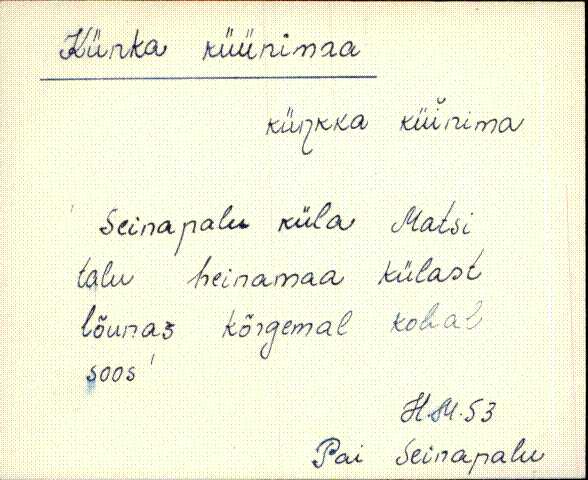 Künka küünimaa
küŋkka küi̮nima
' Seinapalu küla Matsi
talu heinamaa külast
lõunas kõrgemal kohal
soos '
H.M.53
Pai Seinapalu